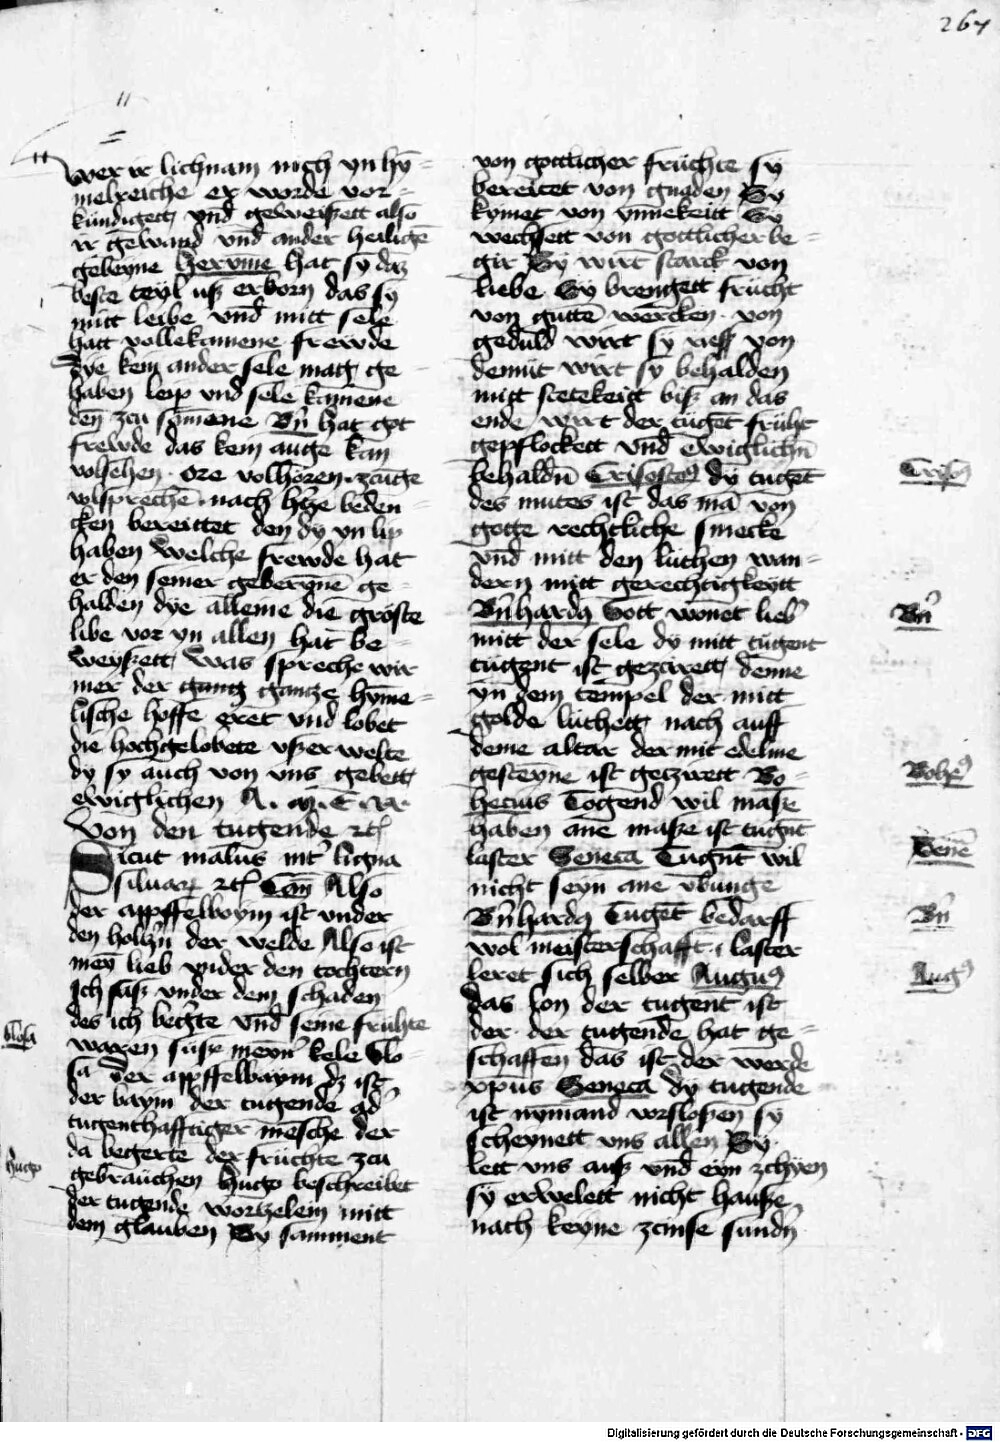 267
wer ir lichnam nich yn hy=
melreiche er worde vor=
kundigett vnd geweiszett also
ir gewand vnd ander heiligē
gebeyne Jeronime hat sy daz
beste teyl usz erkorn das sy
mitt leibe vnd mitt sele
hatt vollekamene frewde
dye kein ander sele mag ge=
haben leip vnd sele kamene
den zcu samene Bn̄ hat got
frewde das kein auge kan
volsehen · ore volhören · zcunge
volsprechē · nach hertze beden=
cken bereittet den dy yn lip
haben Welche frewde hat
er den seiner geberynē ge=
halden dye alleine die gröste
libe vor yn allen hat be=
weyszett Was spreche wir
mer der gantz gantze hyme=
lische hoffe eret vnd lobet
die hochgelobete vszerwelte
dy sy auch von vns gebett
ewiglichen A. m. E. n.
Von den tugende etc
Sicut malus int' ligna
siluarum etc Cant Also
der appffelboym ist vnder
den holtzn̄ der welde Also ist
mey lieb vnder den tochtern
Ich sasz vnder dem schaden
des ich begerte vnd seine frühte
waren süsze meyn' kele Glo=
sa Der appffelbaym dz ist
der baym der tugende ad'
tugenthafftiger mēsche der
da begerte der früchte zcu
gebrauchen Hugo beschreibet
der tugende worczelem mitt
dem glauben Sy samment
Glosa
Hugo
von gottlicher früchte sy
bereitet von gnaden Sy
kymet von ynnekeitt Sy
wechsett von gottlicher be=
gir Sy wirt starck von
liebe Sy brengett frücht
von guttē wercken · von
geduld wirt sy reiff von
demüt wirt sy behalden
mitt stetekeitt bisz an das
ende wirt der tügēt früht
gepflockett vnd ewiglichn̄
behaldn̄ Crisosto9 dy tugēt
des mutes ist das mā von
gotte rechtliche smecke
vnd mitt den lüthen wan=
dern mitt gerechtigkeytt
Bn̄hard9 Gott wonet lieb'
mitt der sele dy mitt tugent
tugent ist gezcirett denne
yn dem tempel der mitt
golde lüchtett nach auff
deme altar der mit edelme
gesteyne ist getzirett Bo=
hecius Togend wil masze
haben ane masze ist tugēt
laster Seneca Tugēt wil
nicht seyn ane vbunge
Bn̄hard9 Tugēt bedarff
wol meisterschafft · laster
leret sich selber Augu9
das lon der tugent ist
der · der tugende hat ge=
schaffen das ist der werde
xpus Seneca dy tugende
ist nymand vorsloszen sy
scheynett vns allen Sy
lett vns ausz vnd eyn zchyen
sy erwelett nicht hausze
nach keyne zcinse sundn̄
Criso9
Bn̄
Bohe9
Sene
Bn̄
Aug9
Digitalisierung gefördert durch die Deutsche Forschungsgemeinschaft - DFG